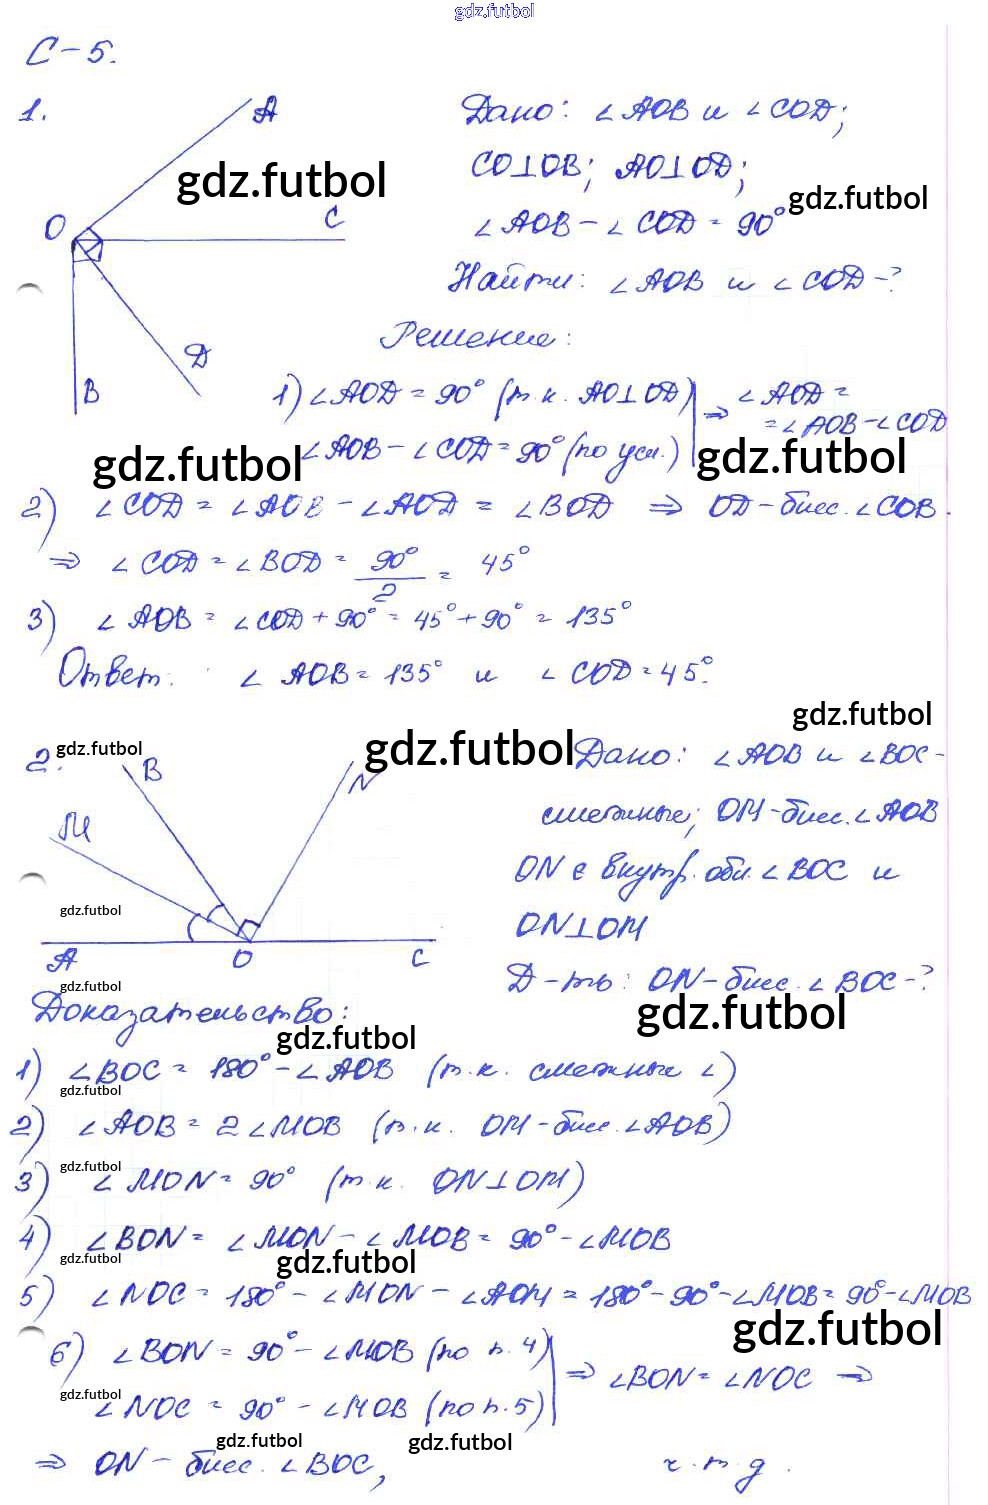 gdz.futbol
С-5.
1.
A
O
C
D
B
gdz.futbol
Дано: ∠AOB и ∠COD;
CO⊥OB; AO⊥OD;
gdz.futbol
∠AOB - ∠COD = 90°
Найти: ∠AOB и ∠COD-?
Решение:
1) ∠AOD = 90° (т.к. AO⊥OD) ⇒ ∠AOD =
= ∠AOB - ∠COD
∠AOB - ∠COD = 90° (по усл.)
gdz.futbol
gdz.futbol
2) ∠COD = ∠AOB - ∠AOD = ∠BOD ⇒ OD-бисс. ∠COB.
⇒ ∠COD = ∠BOD = 90°/2 = 45°
3) ∠AOB = ∠COD + 90° = 45° + 90° = 135°
Ответ: ∠AOB = 135° и ∠COD = 45°.
gdz.futbol
2.
gdz.futbol
gdz.futbol
B
N
M
A
O
C
gdz.futbol
gdz.futbol
Дано: ∠AOB и ∠BOC-
смежные; OM-бисс. ∠AOB
ON є внутр. обл. ∠BOC и
ON⊥OM
Д-ть: ON-бисс. ∠BOC-?
gdz.futbol
Доказательство:
gdz.futbol
1) ∠BOC = 180° - ∠AOB (т.к. смежные ∠)
gdz.futbol
2) ∠AOB = 2∠MOB (т.к. OM-бисс. ∠AOB)
gdz.futbol
3) ∠MON = 90° (т.к. ON⊥OM)
4) ∠BON = ∠MON - ∠MOB = 90° - ∠MOB
gdz.futbol
gdz.futbol
5) ∠NOC = 180° - ∠MON - ∠AOM = 180° - 90° - ∠MOB = 90° - ∠MOB
gdz.futbol
6) ∠BON = 90° - ∠MOB (по п. 4) ⇒ ∠BON = ∠NOC ⇒
gdz.futbol
∠NOC = 90° - ∠MOB (по п. 5)
gdz.futbol
gdz.futbol
⇒ ON - бисс. ∠BOC, ч.т.д.